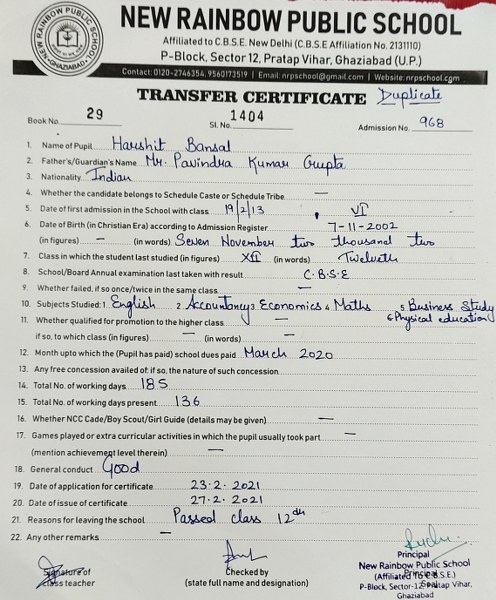 NEW RAINBOW PUBLIC SCHOOL
Affiliated to C.B.S.E. New Delhi (C.B.S.E Affiliation No. 2131110)
P-Block, Sector 12, Pratap Vihar, Ghaziabad (U.P.)
Contact: 0120-2746354, 9560173519 | Email: nrpschool@gmail.com | Website: nrpschool.com
TRANSFER CERTIFICATE Duplicate
Book No. 29 Sl. No. 1404 Admission No. 968
1. Name of Pupil Harshit Bansal
2. Father's/Guardian's Name Mr. Pavindra Kumar Gupta
3. Nationality Indian
4. Whether the candidate belongs to Schedule Caste or Schedule Tribe —
5. Date of first admission in the School with class 19/2/13, VI
6. Date of Birth (in Christian Era) according to Admission Register 7-11-2002
(in figures) — (in words) Seven November two thousand two
7. Class in the student last studied (in figures) XII (in words) Twelveth
8. School/Board Annual examination last taken with result C.B.S.E
9. Whether failed, if so once/twice in the same class —
10. Subjects Studied: 1. English 2. Accountancy 3 Economics 4 Maths 5 Business Study
6 Physical education
11. Whether qualified for promotion to the higher class —
if so, to which class (in figures) — (in words) —
12. Month upto which the (Pupil has paid) school dues paid March 2020
13. Any free concession availed of: if so, the nature of such concession —
14. Total No. of working days 185
15. Total No. of working days present 136
16. Whether NCC Cade/Boy Scout/Girl Guide (details may be given) —
17. Games played or extra curricular activities in which the pupil usually took part —
(mention achievement level therein) —
18. General conduct Good
19. Date of application for certificate 23.2.2021
20. Date of issue of certificate 27.2.2021
21. Reasons for leaving the school Passed class 12th
22. Any other remarks —
Signature of
class teacher
Checked by
(state full name and designation)
Principal
New Rainbow Public School
(Affiliated To C.B.S.E.)
P-Block, Sector-12, Pratap Vihar,
Ghaziabad